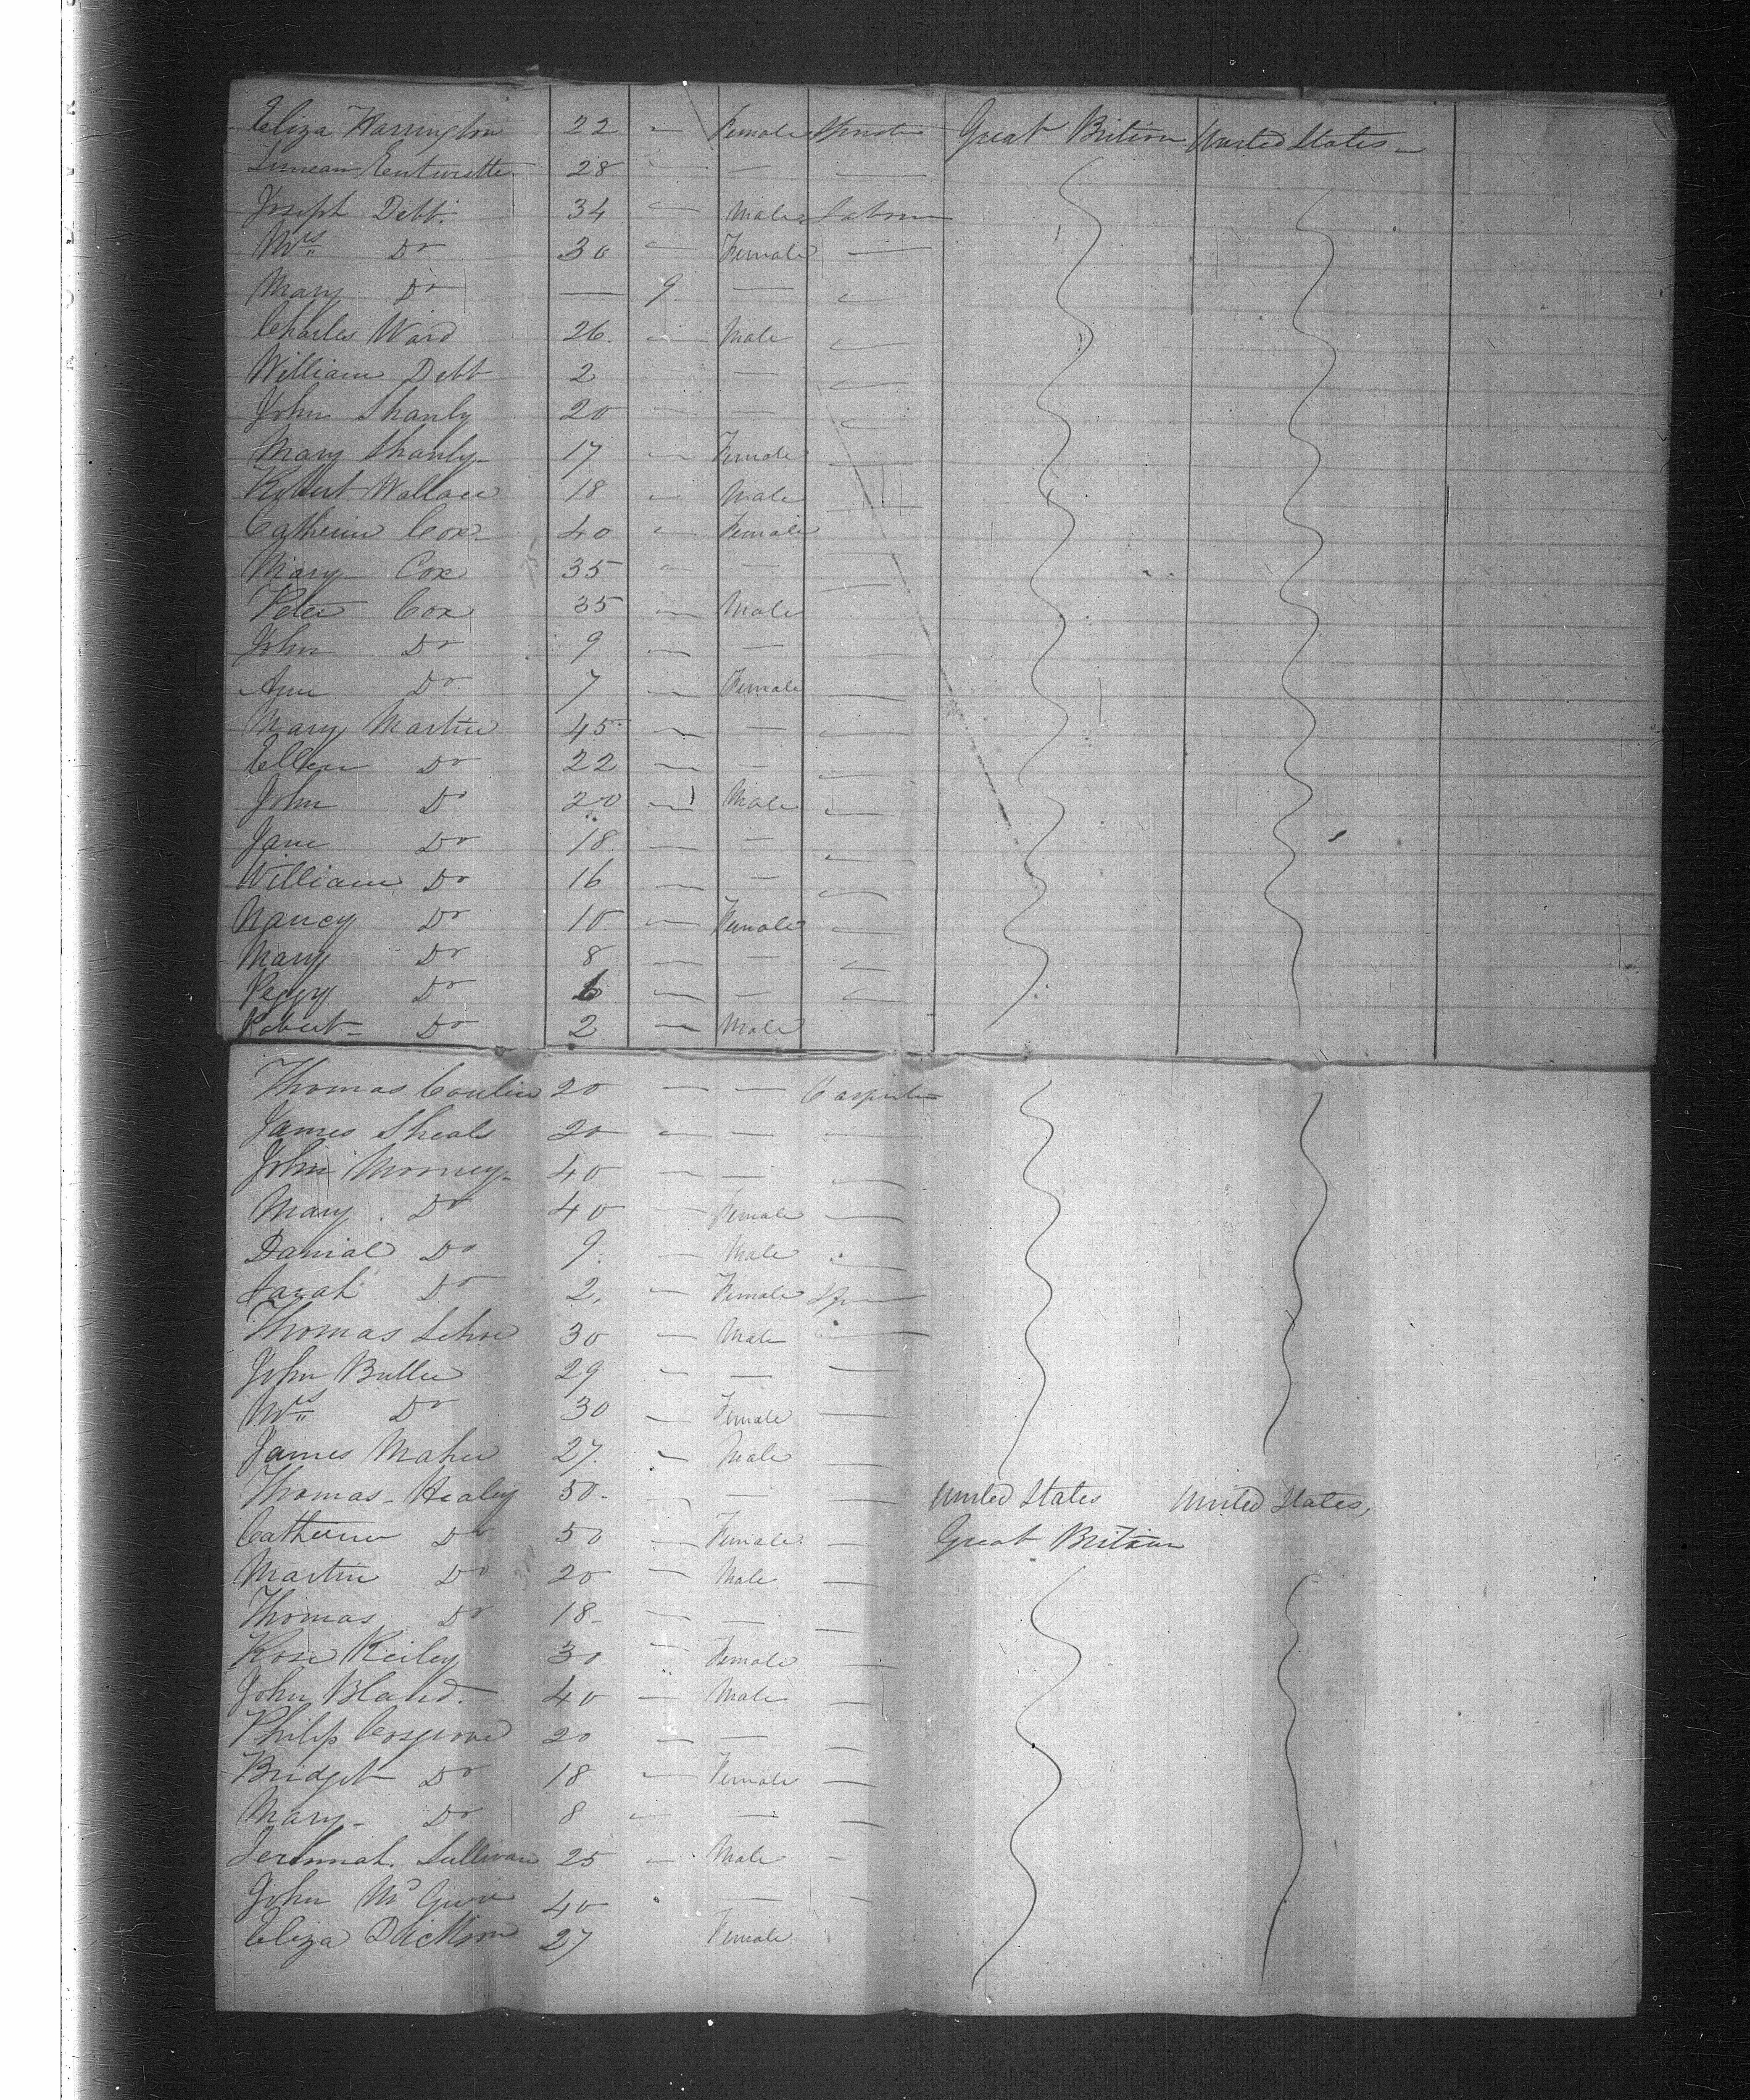 Eliza Harrington 22 — Female Spinster Great Britian United States
28 — — —
Joseph Debb. 34 — Male Labourer
Mrs Do 30 — Female —
Mary Do — 9. — —
Charles Ward 26. — Male —
William Debb 2 — — —
John Shanly 20 — — —
Mary Shanly 17 — Female —
Robert Wallace 18 — Male —
Catherin Cox 40 — Female —
Mary Cox 35 — — —
Peter Cox 35 — Male —
John Do 9 — — —
Ann Do 7 — Female —
Mary Martin 45 — — —
Ellen Do 22 — — —
John Do 20 — Male —
Jane Do 18 — — —
William Do 16 — — —
Nancy Do 10. — Female —
Mary Do 8 — — —
Peggy Do 6 — — —
Robert Do 2 — Male
Thomas Conlin 20 — — Carpenter
James Sheals 20 — — —
John Mooney 40 — — —
Mary Do 40 — Female —
Danial Do 9. — Male —
Sarah Do 2. — Female Sp—
Thomas 30 — Male —
John Butler 29 — — —
Mrs Do 30 — Female —
James Maher 27. — Male —
Thomas Healey 50. — — — United States United States,
Catherin Do 50 — Female — Great Britian
Martin Do 20 — Male —
Thomas Do 18 — — —
Rose Reiley 30 — Female —
John Bland. 40 — Male —
Philip Cosgrove 20 — — —
Bridget Do 18 — Female —
Mary Do 8 — — —
Jeremiah Sullivan 25 — Male —
John 40 — —
Eliza Dickson 27 Female